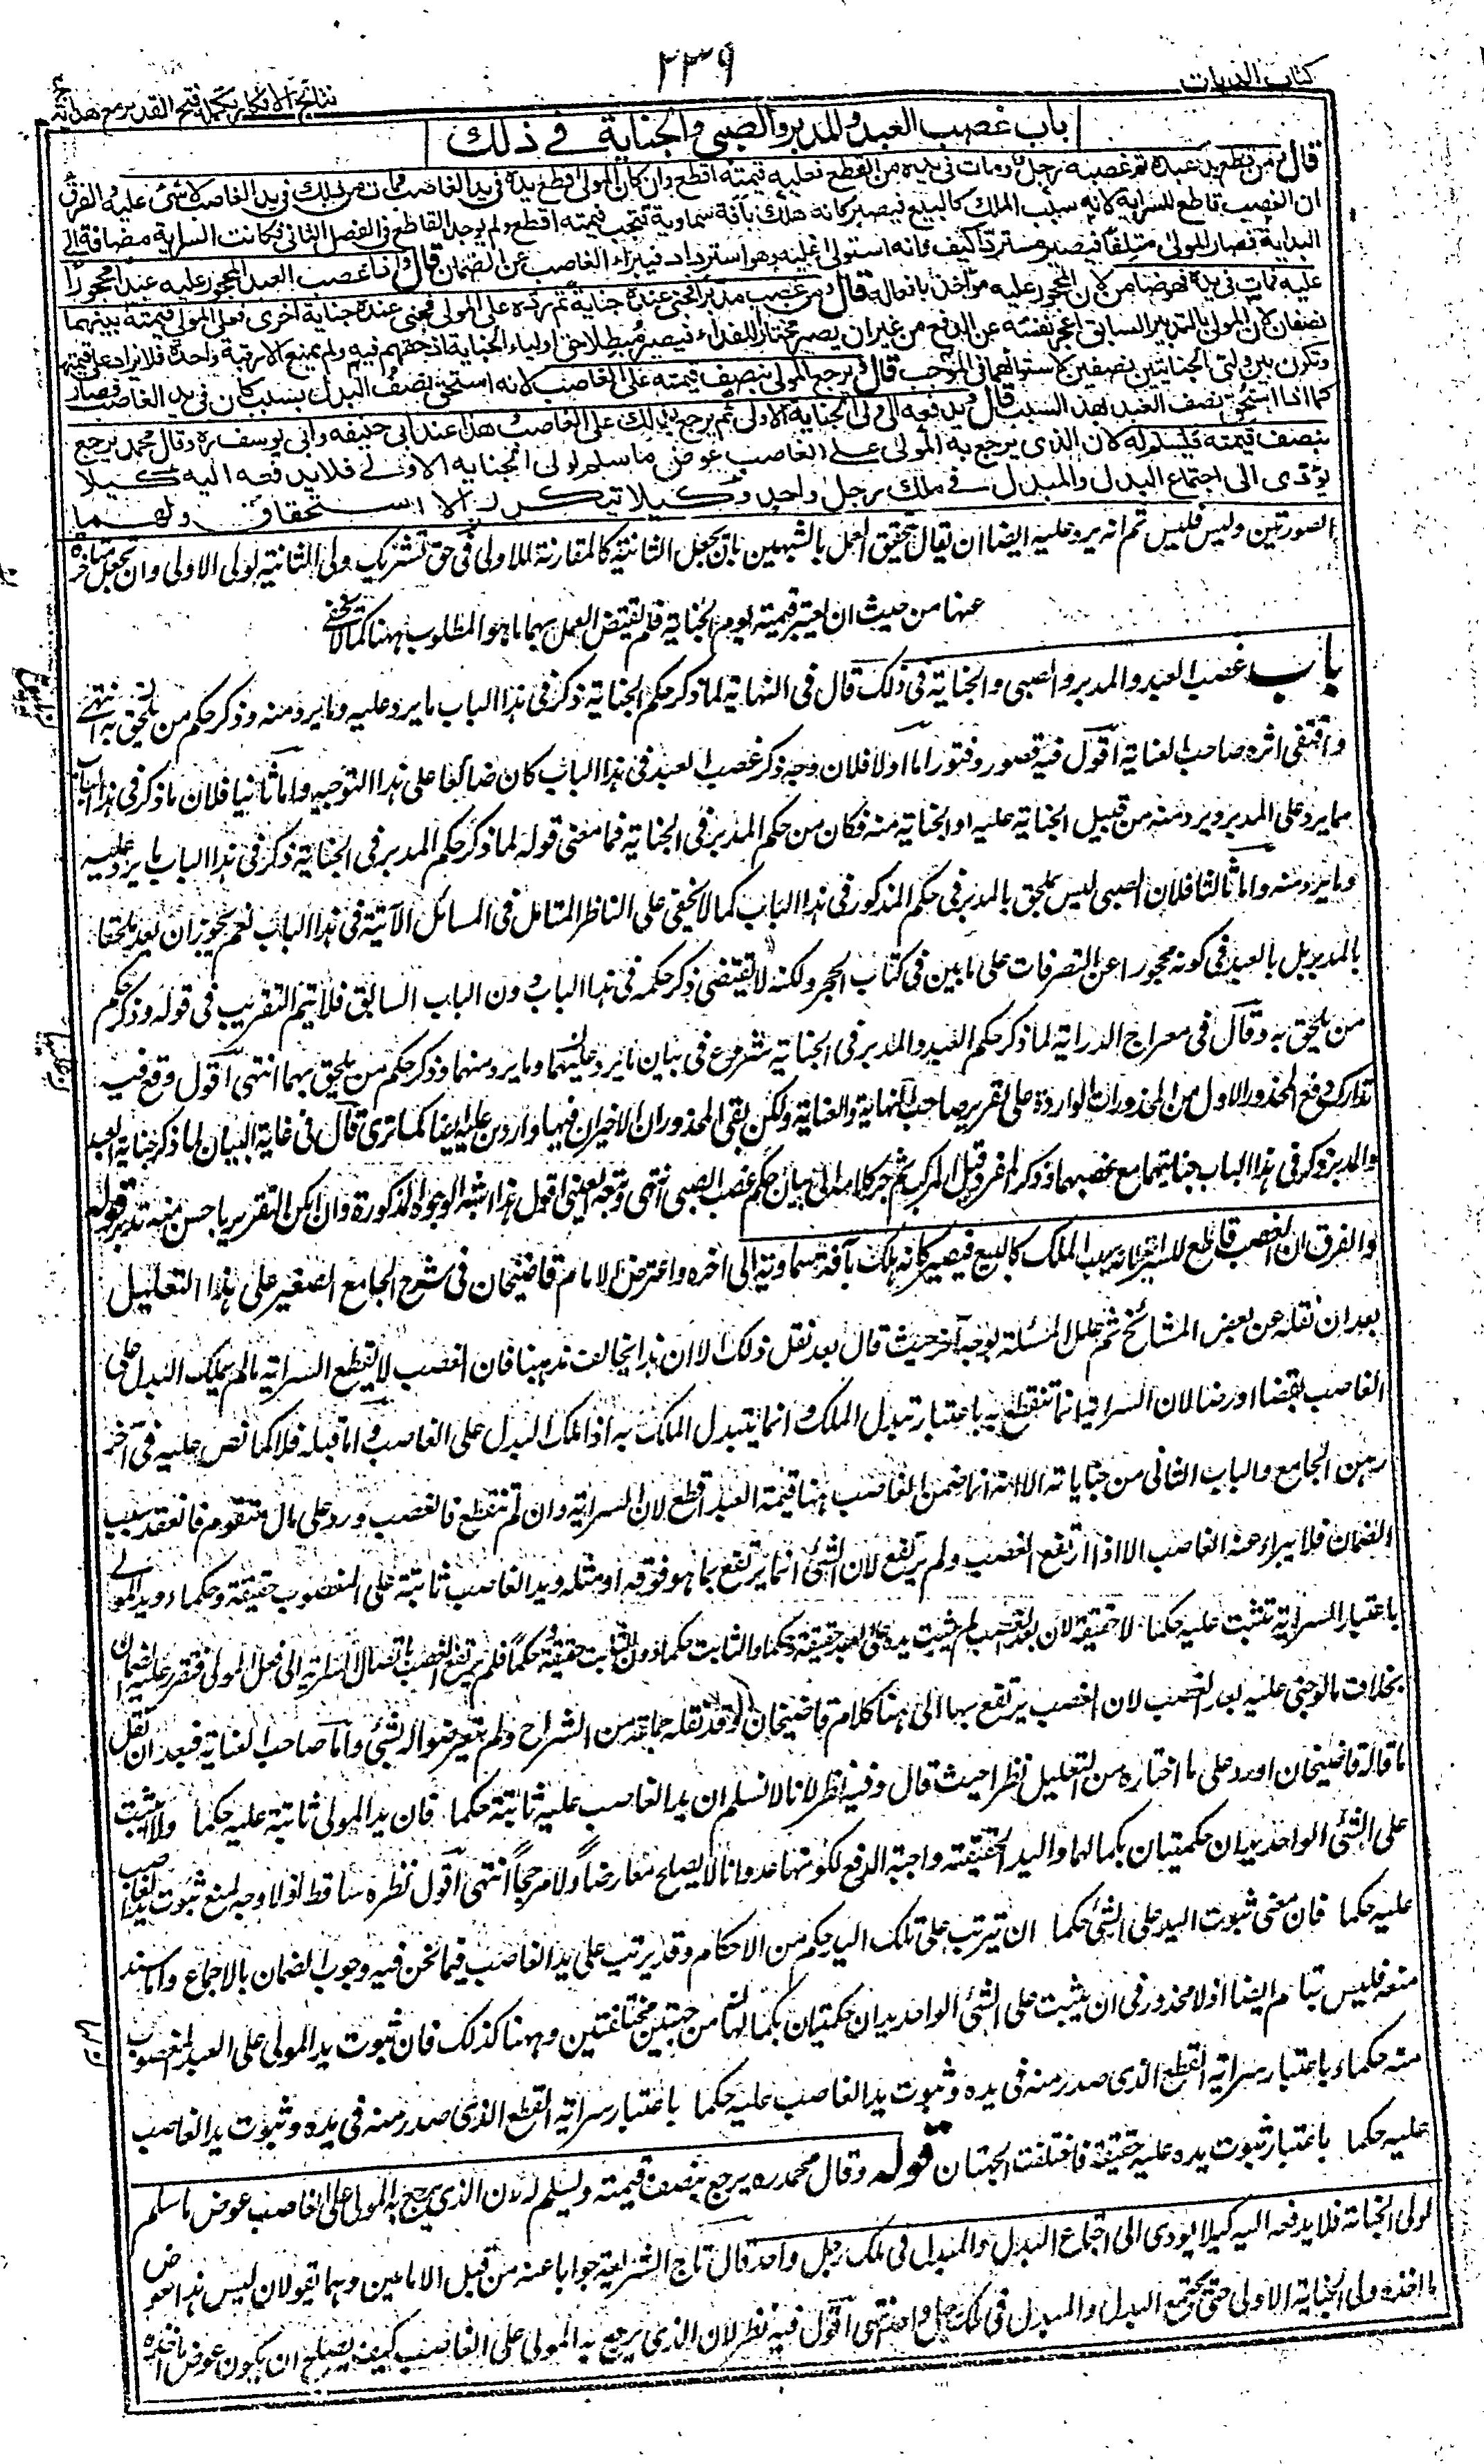 كتاب الديات
٢٣٩
نتائج الافكار تكملة فتح القدير مع هداية
باب غصب العبد والمدبر والصبي والجناية في ذلك
قال ومن قطع يد عبده ثم غصبه رجل ومات في يده من القطع فعليه قيمته اقطع وان كان المولى قطع يده في يد الغاصب فمات من ذلك في يد الغاصب لا شئ عليه والفرق
ان الغصب قاطع للسراية لانه سبب الملك كالبيع فيصير كانه هلك بآفة سماوية فتجب قيمته اقطع ولم يوجد القاطع في الفصل الثاني فكانت السراية مضافة الى
البداية فصار المولى متلفا فيصير مستردا كيف وانه استولى عليه وهو استرداد فيبرأ الغاصب عن الضمان قال واذا غصب العبد المحجور عليه عبدا محجورا
عليه فمات في يده فهو ضامن لان المحجور عليه مؤاخذ بافعاله قال ومن غصب مدبرا فجنى عنده جناية ثم رده على المولى فجنى عنده جناية اخرى فعلى المولى قيمته بينهما
نصفان لان المولى بالتدبير السابق اعجز نفسه عن الدفع من غير ان يصير مختارا للفداء فيصير مبطلا حق اولياء الجناية اذ حقهم فيه ولم يمنع الا رقبة واحدة فلا يزاد على قيمتها
وتكون بين وليي الجنايتين نصفين لاستوائهما في الموجب قال ويرجع المولى بنصف قيمته على الغاصب لانه استحق نصف البدل بسبب كان في يد الغاصب فصار
كما اذا استحق نصف العبد بهذا السبب قال ويدفعه الى ولي الجناية الاولى ثم يرجع بذلك على الغاصب هذا عند ابي حنيفة وابي يوسف ره وقال محمد يرجع
بنصف قيمته فيسلم له لان الذي يرجع به المولى على الغاصب عوض ما سلم لولي الجناية الاولى فلا يدفعه اليه كيلا
يؤدى الى اجتماع البدل والمبدل في ملك رجل واحد وكيلا يتكرر الاستحقاق ولهما
الصورتين وليس فليس ثم انه يرد عليه ايضا ان يقال تحقيق العمل بالشبهين بان يجعل الثانية كالمقارنة للاولى في حق تشريك ولي الثانية لولي الاولى وان تجعل متاخرة
عنها من حيث ان تعتبر قيمته يوم الجناية فلم يقتض العمل بهما ما هو المطلوب ههنا كما لا يخفى
باب غصب العبد والمدبر والصبي والجناية في ذلك قال في النهاية لما ذكر حكم الجناية ذكر في هذا الباب ما يرد عليه وما يرد منه وذكر حكم من يلحق به انتهى
واقتفى اثره صاحب العناية اقول فيه قصور وفتور اما اولا فلان وجه ذكر غصب العبد في هذا الباب كان ضائعا على هذا التوجيه واما ثانيا فلان ما ذكر في هذا الباب
مما يرد على المدبر ويرد منه من قبيل الجناية عليه او الجناية منه فكان من حكم المدبر في الجناية فما معنى قوله لما ذكر حكم المدبر في الجناية ذكر في هذا الباب ما يرد عليه
وما يرد منه واما ثالثا فلان الصبي ليس يلحق بالمدبر في حكم المذكور في هذا الباب كما لا يخفى على الناظر المتامل في المسائل الآتية في هذا الباب نعم يجوز ان يعد ملحقا
بالمدبر بل بالعبد في كونه محجورا عن التصرفات على ما بين في كتاب الحجر ولكنه لا يقتضي ذكر حكمه في هذا الباب دون الباب السابق فلا يتم التقريب في قوله وذكر حكم
من يلحق به وقال في معراج الدراية لما ذكر حكم العبد والمدبر في الجناية شرع في بيان ما يرد عليهما وما يرد منهما وذكر حكم من يلحق بهما انتهى اقول وقع فيه
تدارك دفع المحذور الاول من المحذورات الواردة على تقرير صاحب النهاية والعناية ولكن بقى المحذوران الاخيران فيها واردين عليه ايضا كما ترى قال في غاية البيان لما ذكر جناية العبد
والمدبر ذكر في هذا الباب جنايتهما مع غصبهما وذكر المفرد قبل المركب ثم جر كلامه الى بيان حكم غصب الصبي انتهى وتبعه العيني اقول هذا اشبه الوجوه المذكورة وان امكن التقرير باحسن منه تدبر قوله
والفرق ان الغصب قاطع للسراية لانه سبب الملك كالبيع فيصير كانه هلك بآفة سماوية الى اخره واعترض الامام قاضيخان في شرح الجامع الصغير على هذا التعليل
بعد ان نقله عن بعض المشائخ ثم علل المسئلة بوجه آخر حيث قال بعد نقل ذلك الا ان هذا يخالف مذهبنا فان الغصب لا يقطع السراية ما لم يملك البدل على
الغاصب بقضاء او رضا لان السراية انما تنقطع به باعتبار تبدل الملك وانما يتبدل الملك به اذا ملك البدل على الغاصب واما قبله فلا كما نص عليه في آخر
رهن الجامع والباب الثاني من جناياته الا انه انما ضمن الغاصب ههنا قيمة العبد اقطع لان السراية وان لم تنقطع فالغصب ورد على مال متقوم فانعقد سبب
الضمان فلا يبرأ عنه الغاصب الا اذا ارتفع الغصب ولم يرتفع لان الشئ انما يرتفع بما هو فوقه او مثله ويد الغاصب ثابتة على المغصوب حقيقة وحكما ويد المولى
باعتبار السراية تثبت عليه حكما لا حقيقة لان بعد الغصب لم يثبت يده على العبد حقيقة وحكما والثابت حكما دون الثابت حقيقة وحكما فلم يرتفع الغصب باتصال السراية الى فعل المولى فتقرر عليه الضمان
بخلاف ما لو جنى عليه بعد الغصب لان الغصب يرتفع بها الى هنا كلام قاضيخان وقد نقله جماعة من الشراح ولم يتعرضوا له بشئ واما صاحب العناية فبعد ان نقل
ما قاله قاضيخان اورد على ما اختاره من التعليل نظرا حيث قال وفيه نظر لانا لا نسلم ان يد الغاصب عليه ثابتة حكما فان يد المولى ثابتة عليه حكما ولا يثبت
على الشئ الواحد يدان حكميتان بكمالهما واليد الحقيقية واجبة الدفع لكونها عدوانا لا يصلح معارضا ولا مرجحا انتهى اقول نظره ساقط اذ لا وجه لمنع ثبوت يد الغاصب
عليه حكما فان معنى ثبوت اليد على الشئ حكما ان يترتب على تلك اليد حكم من الاحكام وقد يرتب على يد الغاصب فيما نحن فيه وجوب الضمان بالاجماع واما سند
منعه فليس بتام ايضا اذ لا محذور في ان يثبت على الشئ الواحد يدان حكميتان بكمالهما من جهتين مختلفتين وههنا كذلك فان ثبوت يد المولى على العبد المغصوب
منه حكما باعتبار سراية القطع الذي صدر منه في يده وثبوت يد الغاصب عليه حكما باعتبار سراية القطع الذي صدر منه في يده وثبوت يد الغاصب
عليه حكما باعتبار ثبوت يده عليه حقيقة فاختلفت الجهتان قوله وقال محمد ره يرجع بنصف قيمته ويسلم له لان الذي يرجع به المولى على الغاصب عوض ما سلم
لولي الجناية فلا يدفعه اليه كيلا يودى الى اجتماع البدل والمبدل في ملك رجل واحد قال تاج الشريعة جوابا عنه من قبل الامامين وهما يقولان ليس هذا عوض
ما اخذه ولي الجناية الاولى حتى يجتمع البدل والمبدل في ملك رجل واحد انتهى اقول فيه نظر لان الذي يرجع به المولى على الغاصب كيف يصلح ان يكون عوض ما اخذه